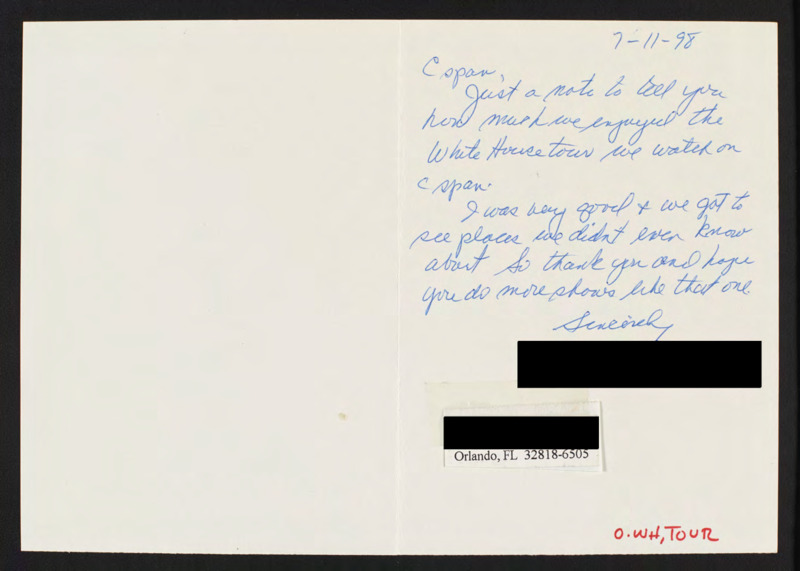 7-11-98
C span,
Just a note to tell you
how much we enjoyed the
White House tour we watch on
C span.
I was very good & we got to
see places we didn't even know
about So thank you and hope
you do more shows like that one.
Sincerely
Orlando, FL 32818-6505
O.WH, TOUR